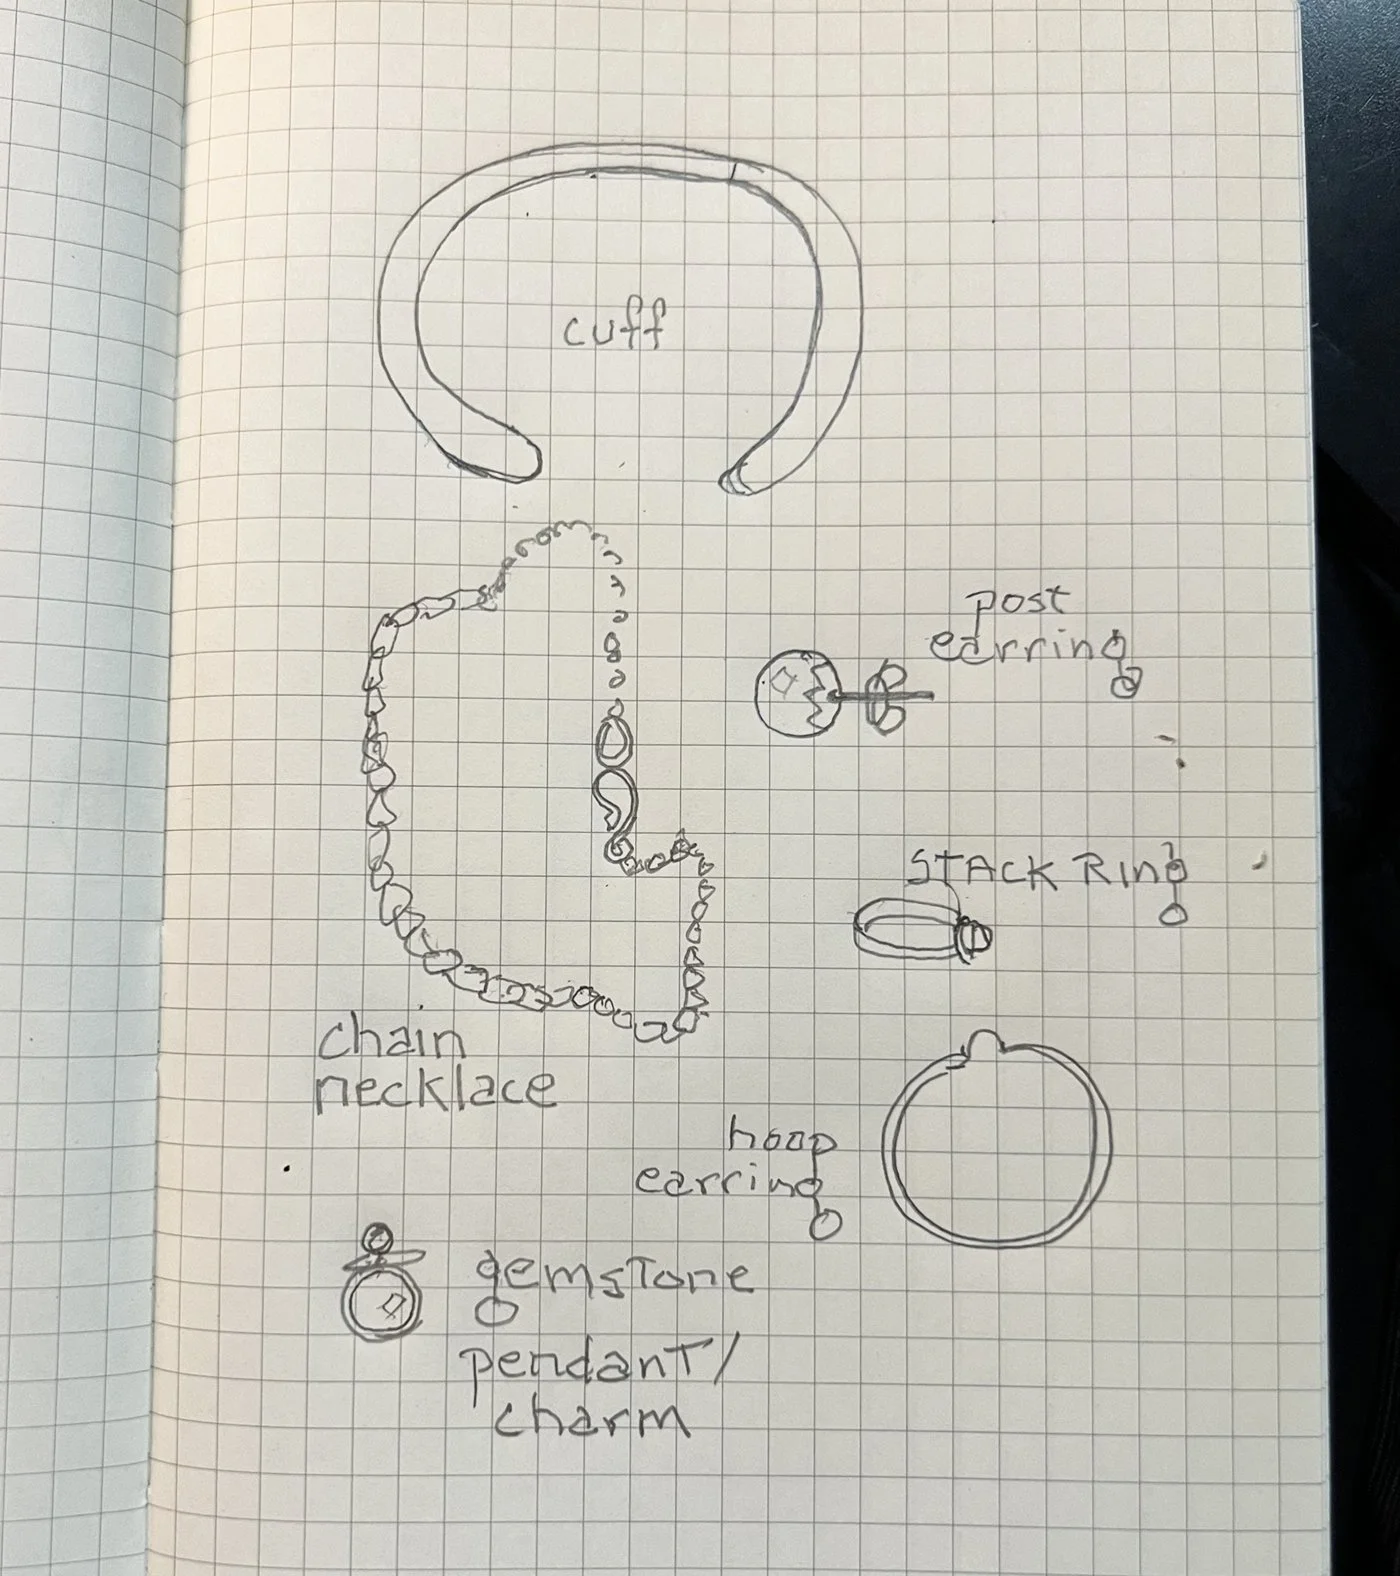 cuff
post
earring
STACK RinG
chain
necklace
hoop
earring
gemsTone
pendanT/
charm